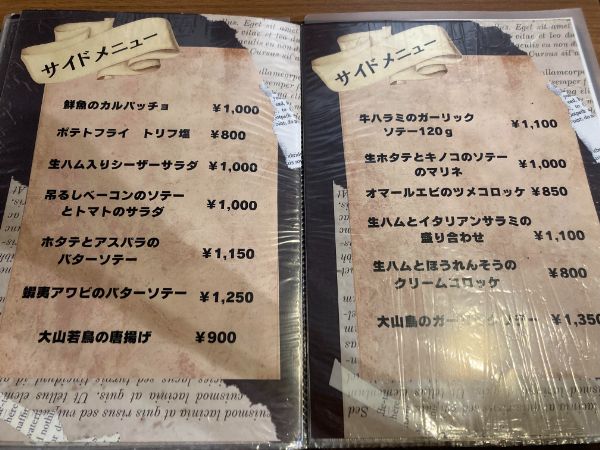 サイドメニュー
鮮魚のカルパッチョ ¥1,000
ポテトフライ トリフ塩 ¥800
生ハム入りシーザーサラダ ¥1,000
吊るしベーコンのソテー
とトマトのサラダ ¥1,000
ホタテとアスパラの
バターソテー ¥1,150
蝦夷アワビのバターソテー ¥1,250
大山若鳥の唐揚げ ¥900
サイドメニュー
牛ハラミのガーリック
ソテー120g ¥1,100
生ホタテとキノコのソテー
のマリネ ¥1,000
オマールエビのツメコロッケ ¥850
生ハムとイタリアンサラミの
盛り合わせ ¥1,100
生ハムとほうれんそうの
クリームコロッケ ¥800
大山鳥のガー ¥1,350